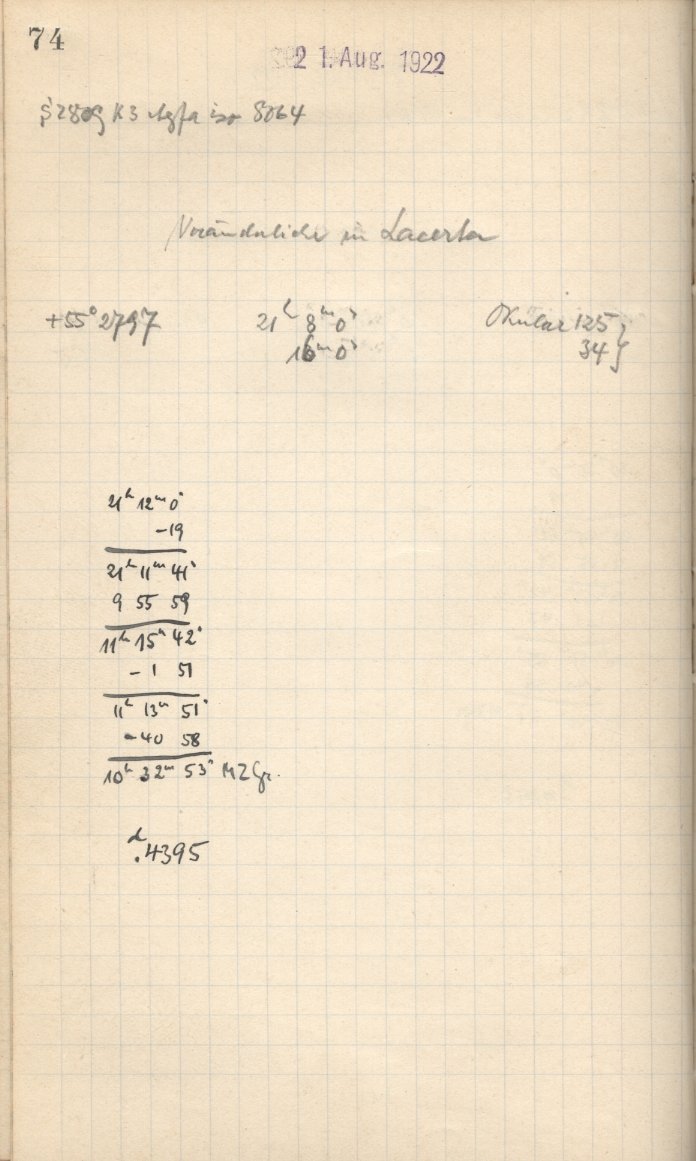 74
21. Aug. 1922
S 2809 K3 Agfa iso 8064
Veränderliche in Lacerta
+55° 2797 21ʰ 8ᵐ 0ˢ Okular 125 }
16ᵐ 0ˢ 34 }
21ʰ 12ᵐ 0ˢ
-19
21ʰ 11ᵐ 41ˢ
9 55 59
11ʰ 15ᵐ 42ˢ
- 1 51
11ʰ 13ᵐ 51ˢ
-40 58
10ʰ 32ᵐ 53ˢ MZGr.
ᵈ.4395